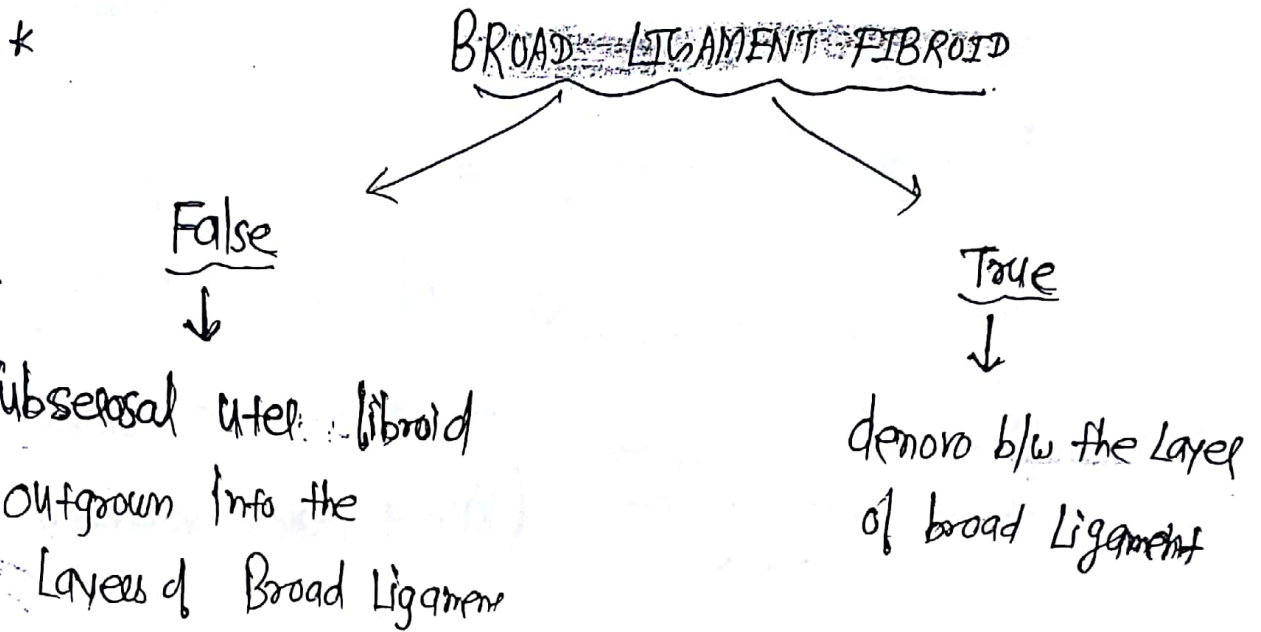 *
BROAD LIGAMENT FIBROID
False
True
ubserosal uter fibroid
outgrown into the
Layers of Broad Ligament
denovo b/w the Layer
of broad Ligament